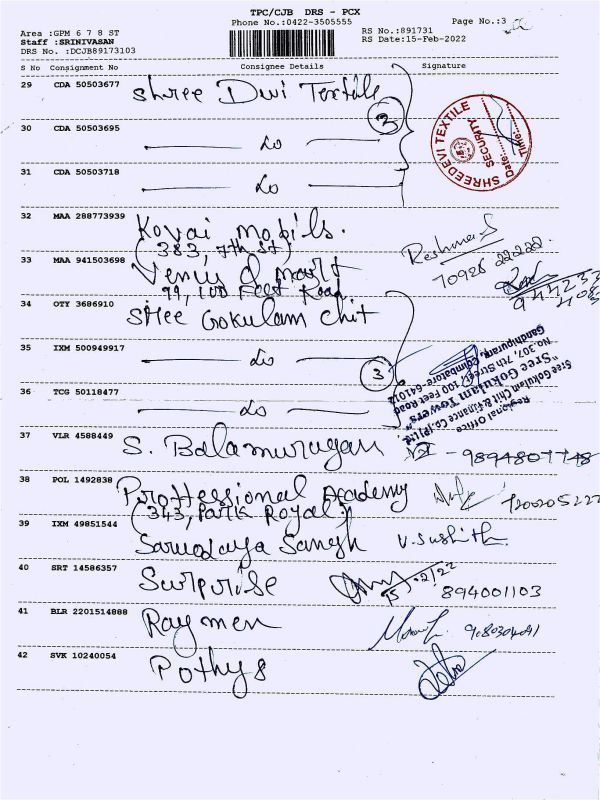 TPC/CJB DRS - PCX
Phone No.:0422-3505555 Page No.:3
Area :GPM 6 7 8 ST RS No.:891731
Staff :SRINIVASAN RS Date:15-Feb-2022
DRS No. :DCJB89173103
S No Consignment No Consignee Details Signature
29 CDA 50503677 Shree Dvi Textile
3
SHREEDEVI TEXTILE
SECURITY
Date:
Time:
30 CDA 50503695 Do
31 CDA 50503718 Do
32 MAA 288773939 Kovai Mobils.
(383, 7th St) Reshma.S
70926 22222
33 MAA 941503698 Venus d mart
99, 100 Feet Road
34 OTY 3686910 Shree Gokulam Chit
35 IXM 500949917 Do
3
Regional Office
Sree Gokulam Chit & Finance Co. (P) Ltd.
"Sree Gokulam Towers"
No.307, 7th Street, 100 Feet Road
Gandhipuram, Coimbatore-641012
36 TCG 50118477 Do
37 VLR 4588449 S. Balamurugan - 9894807748
38 POL 1492838 Proffessional Academy
(343, Park Royal) 720020522
39 IXM 49851544 Sarvodaya Sangh V. Sushith
40 SRT 14586357 Surprise 15/2/22 894001103
41 BLR 2201514888 Raymen 9080304091
42 SVK 10240054 Pothys